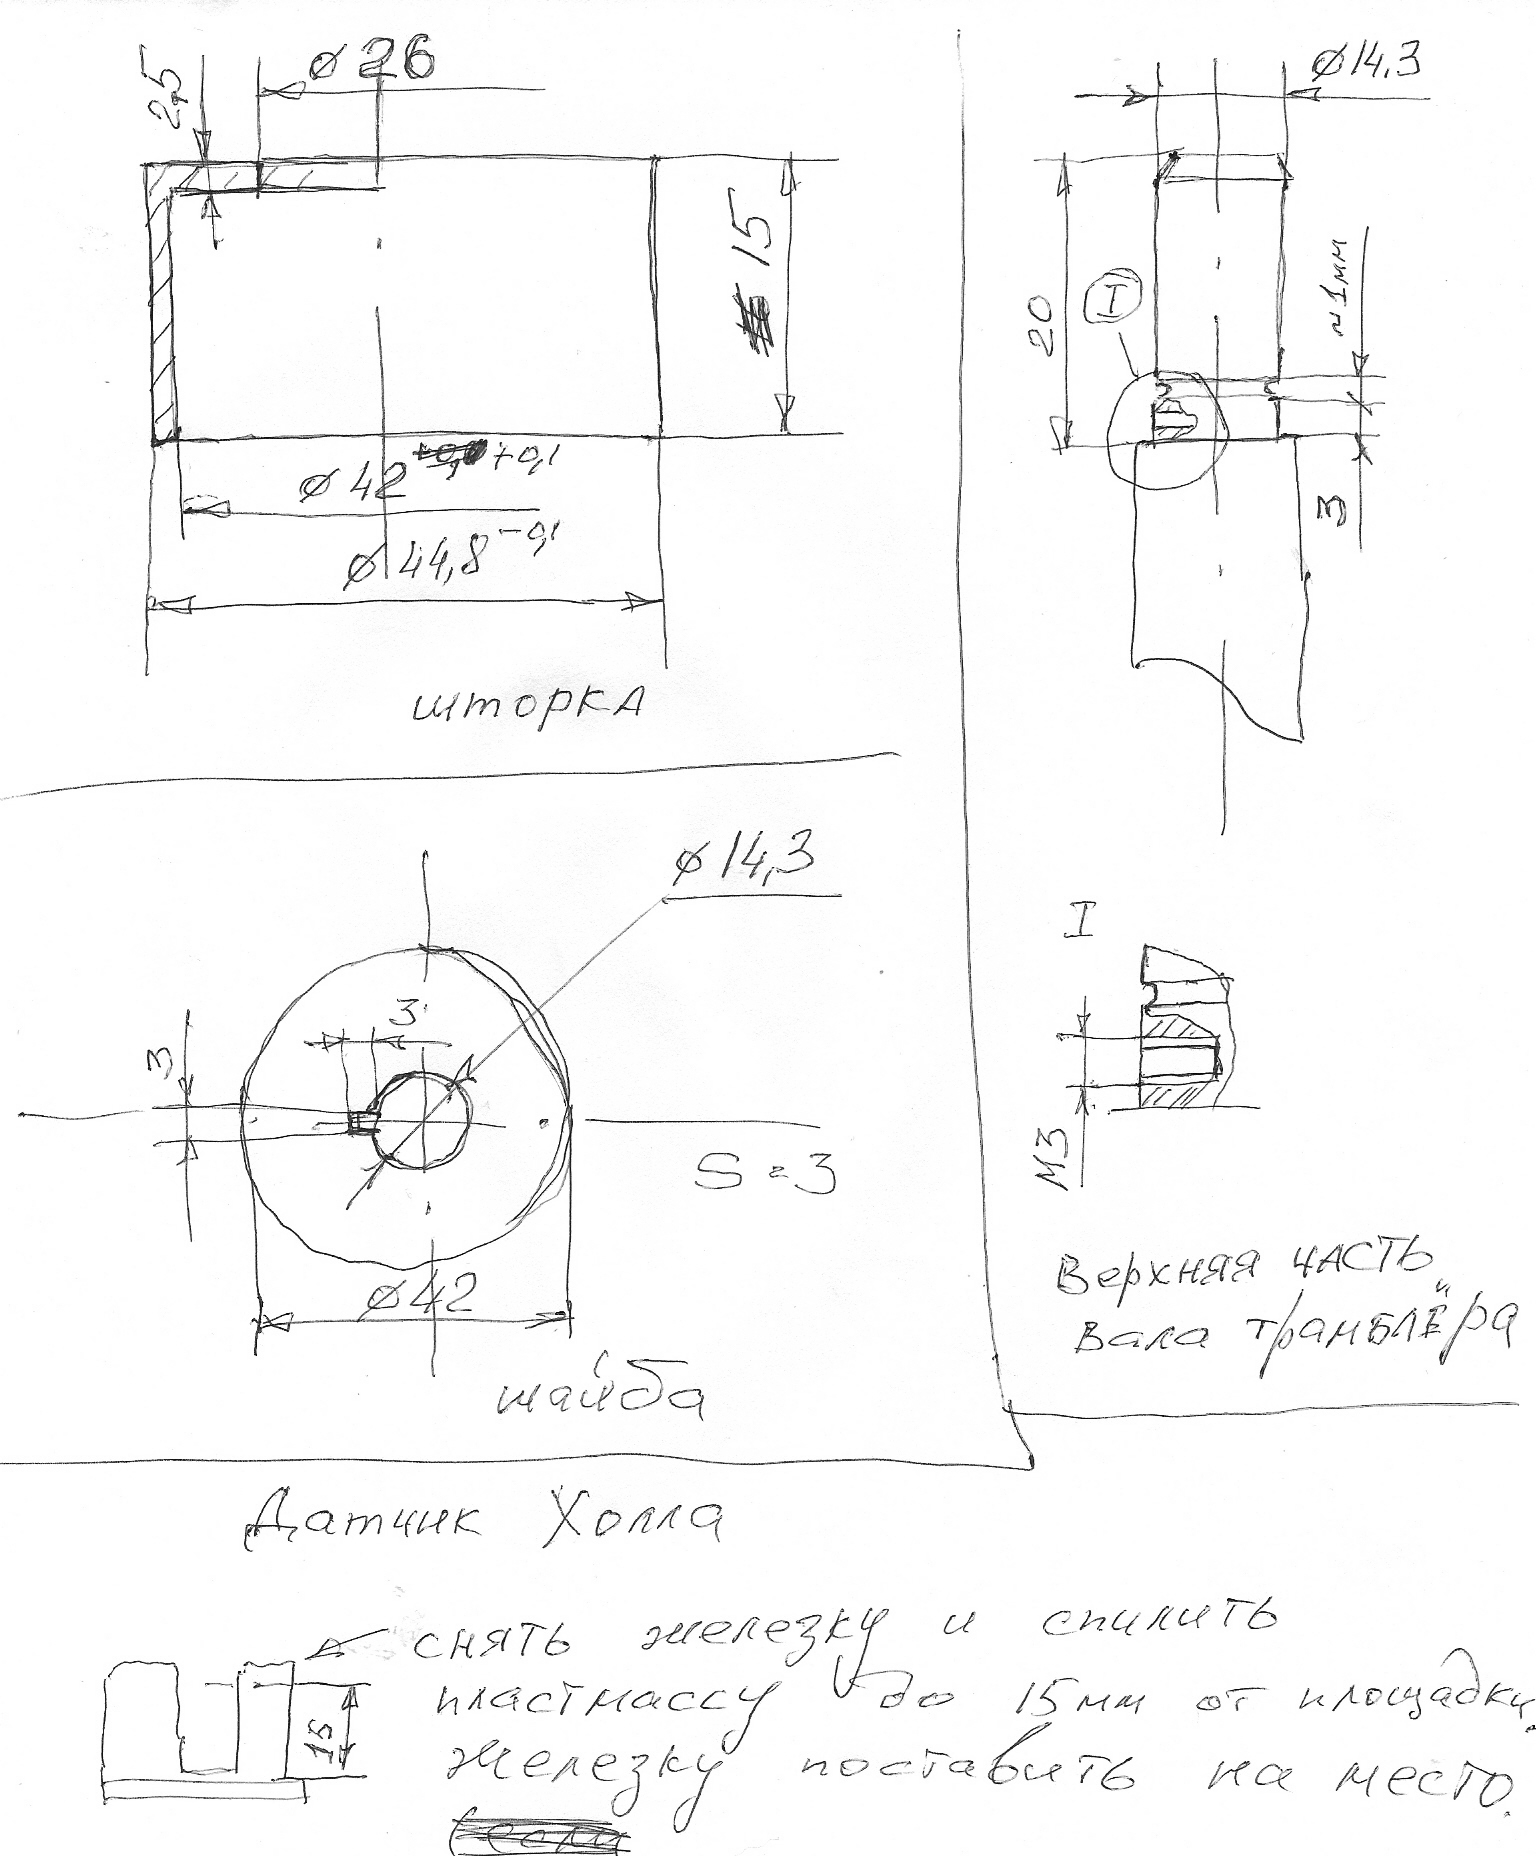 2,5
ø 26
15
ø 42 +0,1
ø 44,8 -0,1
шторка
ø 14.3
20
I
≈ 1мм
3
ø 14,3
3
3
S = 3
ø 42
шайба
I
М3
Верхняя часть
вала трамблЁра
Датчик Холла
снять железку и спилить
пластмассу до 15 мм от площадки.
15
Железку поставить на место.